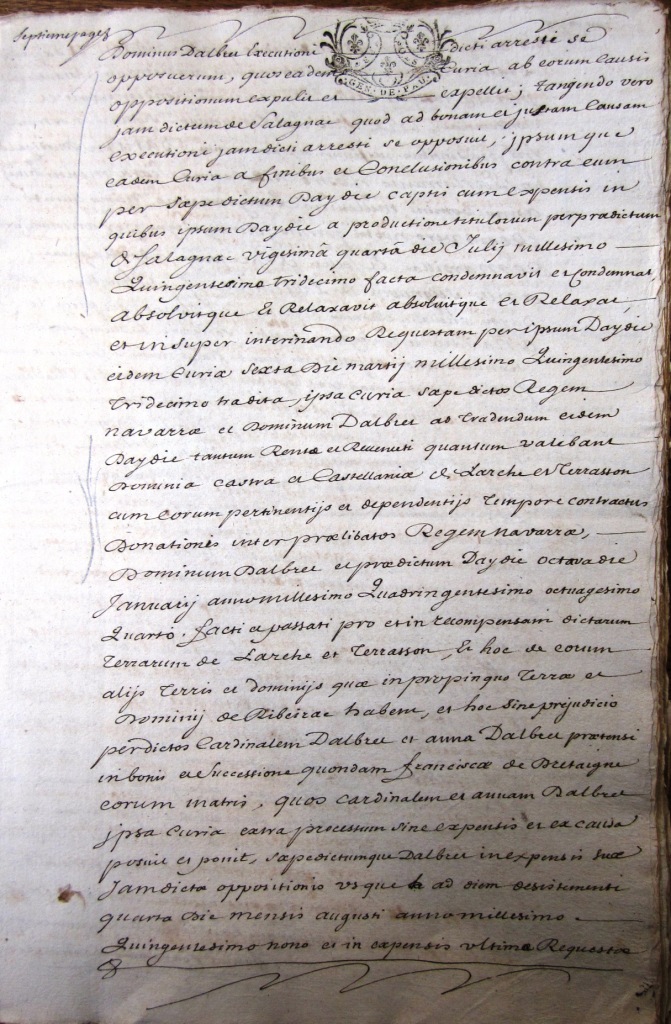 Septieme page
Dominus Dalbret Executioni dicti arresti se
GEN. DE. PAU.
opposuerunt, quos eadem Curia ab eorum Causis
oppositionum expulit et expellit; tangendo vero
jam dictum de Salagnac quod ad bonam et justam Causam
Executioni jam dicti arresti se opposuit, ipsum que
eadem Curia a finibus et Conclusionibus contra eum
per Sæpe dictum Daydie captis cum Expensis in
quibus ipsum Daydie a productione titulorum per prædictum
de Salagnac vigesimâ quartâ die Julij millesimo
Quingentesimo tridecimo facta condemnavit et Condemnat
absolvitque Et Relaxavit absolvitque et Relaxat,
et insuper interinando Requestam per ipsum Daydie
eidem Curiæ Sexta Die martij millesimo Quingentesimo
Tridecimo tradita, ipsa Curia Sæpe dictos Regem
navarræ et Dominum Dalbret ad Tradendum eidem
Daydie tantum Rentæ et Reveneti quantum valebant
Dominia castra et Castellaniæ de Larche et Terrasson
cum eorum pertinentijs et dependentijs Tempore contractus
Donationis inter prælibatos Regem navarræ,
Dominum Dalbret et prædictum Daydie octava die
Januarij anno millesimo Quadringentesimo octuagesimo
Quarto. facti et passati pro et in recompensam dictarum
Terrarum de Larche et Terrasson, Et hoc de eorum
alijs Terris et dominijs quæ in propinquo Terræ et
Dominij de Ribeirac habent, et hoc Sine prejudicio
per dictos Cardinalem Dalbret et anna Dalbret prætensi
in bonis et Successione quondam franciscæ de Bretaigne
eorum matris, quos cardinalem et annam Dalbret
ipsa Curia extra processum Sine expensis et ex causa
posuit et ponit, Sæpe dictumque Dalbret in expensis suæ
Jam dictæ oppositionis usque ad diem desistementi
quarta Die mensis augusti anno millesimo
Quingentesimo nono et in expensis ultimæ Requestæ